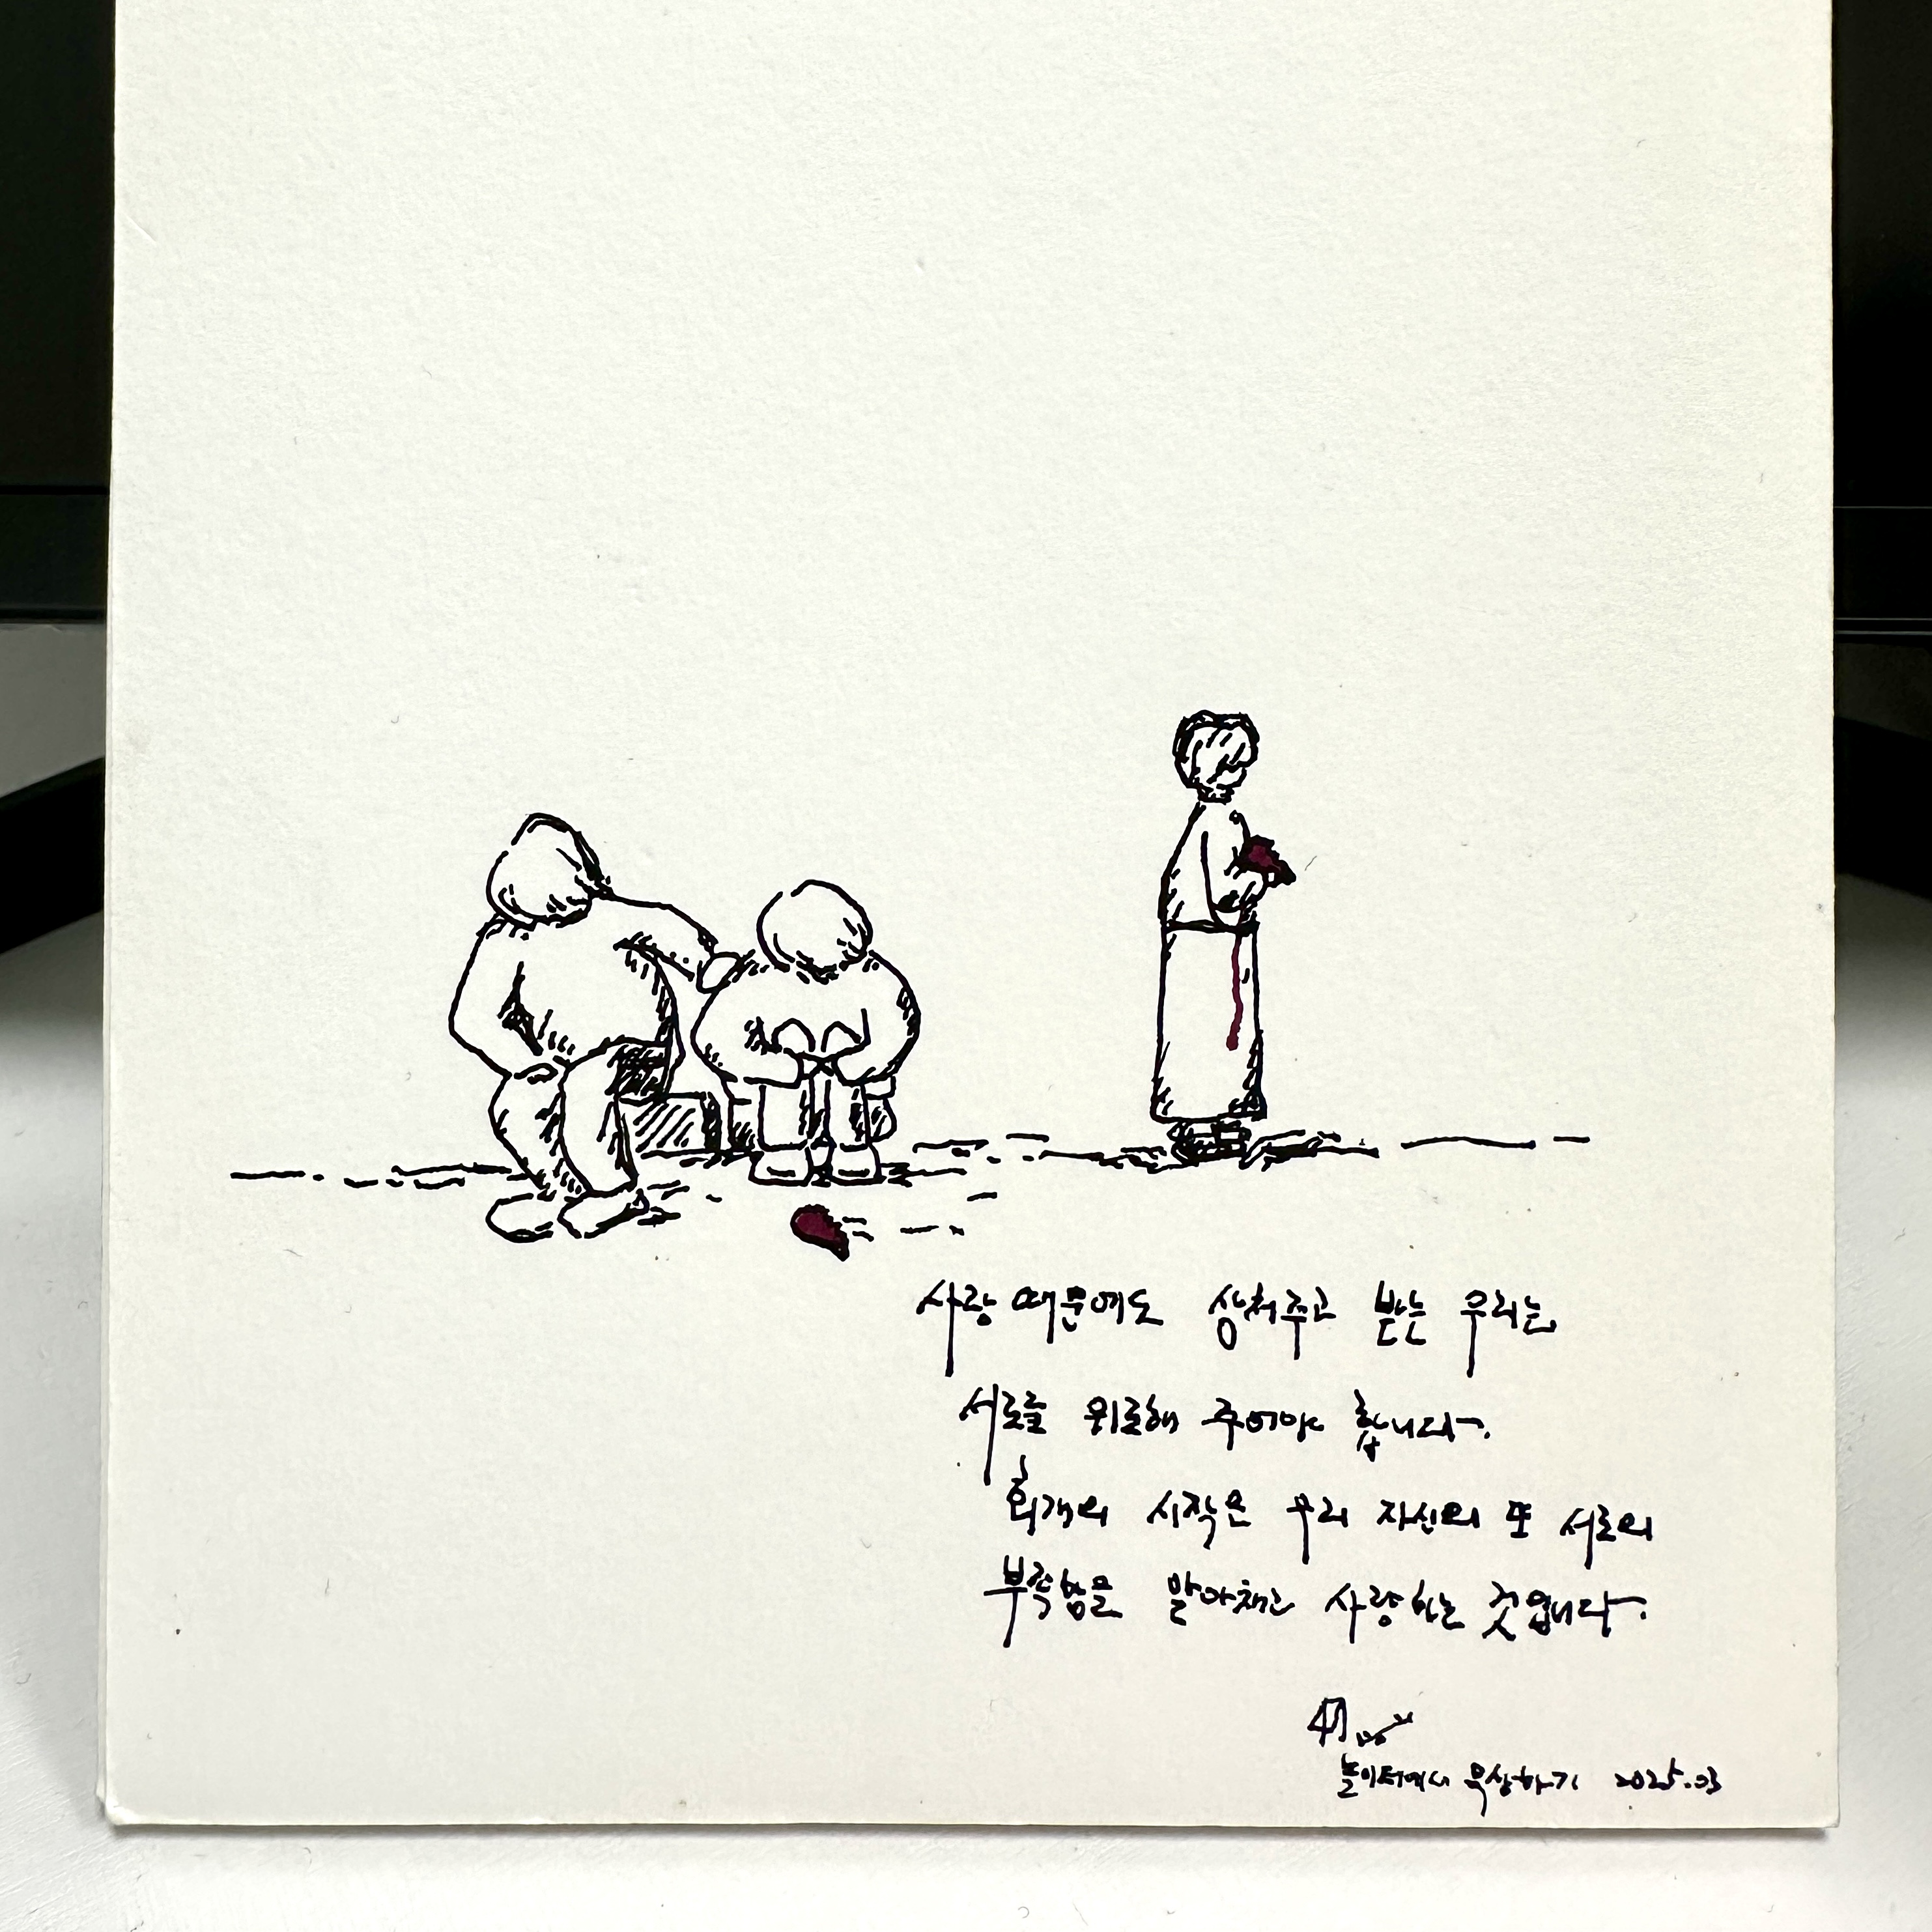 사랑 때문에도 상처주고 받는 우리는,
서로를 위로해 주어야 합니다.
회개의 시작은 우리 자신의 또 서로의
부족함을 알아채고 사랑하는 것입니다.
놀이터에서 묵상하기 2025.03